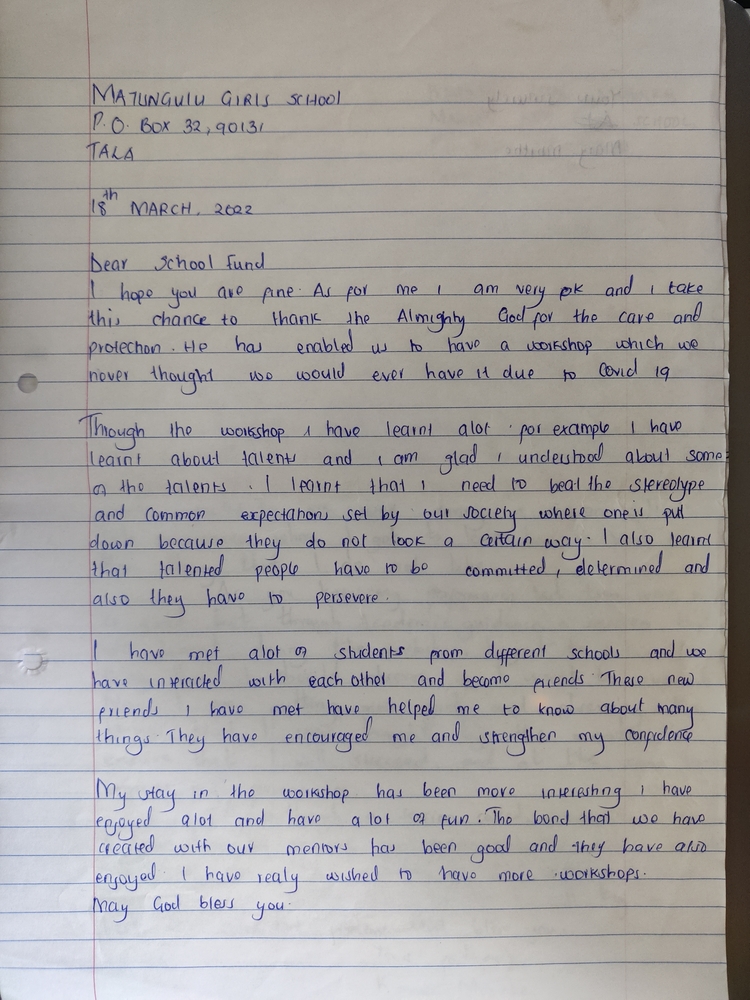 MATUNGULU GIRLS SCHOOL
P.O. BOX 32, 90131
TALA
18th MARCH, 2022
Dear School Fund
I hope you are fine. As for me I am very ok and I take
this chance to thank the Almighty God for the care and
protection. He has enabled us to have a workshop which we
never thought we would ever have it due to Covid 19
Through the workshop I have learnt alot. for example I have
learnt about talents and I am glad I understood about some
of the talents. I learnt that I need to beat the stereotype
and common expectations set by our society where one is put
down because they do not look a certain way. I also learnt
that talented people have to be committed, determined and
also they have to persevere.
I have met alot of students from different schools and we
have interacted with each other and become friends. These new
friends I have met have helped me to know about many
things. They have encouraged me and strengthen my confidence
My stay in the workshop has been more interesting I have
enjoyed alot and have a lot of fun. The bond that we have
created with our mentors has been good and they have also
enjoyed. I have realy wished to have more workshops.
May God bless you.